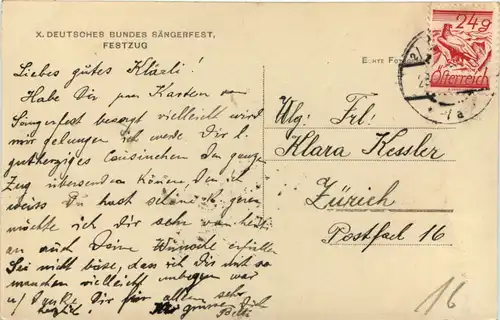 X. DEUTSCHES BUNDES SÄNGERFEST,
FESTZUG
Liebes gutes Klärli!
Habe Dir paar Karten vom
Sängerfest besorgt vielleicht wird
mir gelungen ich werde Dir l.
gutherziges Cousinchen den ganzen
Zug übersenden können, den ich
weiss Du hast schöne K. gerne
möchte ich Dir sehr von
an auch Deine Wünsche erfüllen
Sei nicht böse, dass ich Dir mit so
manchen vielleicht unbequem war
u/ Danke Dir für allem sehr
herzlich! grüssen Dich
Betti
ECHTE FOTO
24g
Österreich
Wlg: Frl:
Klara Kessler
Zürich
Postfach 16
16